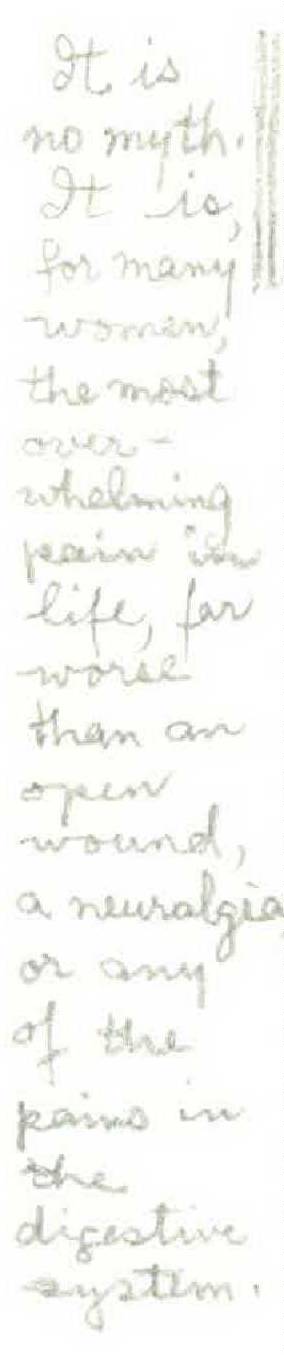 It is
no myth.
It is,
for many
women,
the most
over-
whelming
pain in
life, far
worse
than an
open
wound,
a neuralgia,
or any
of the
pains in
the
digestive
system.